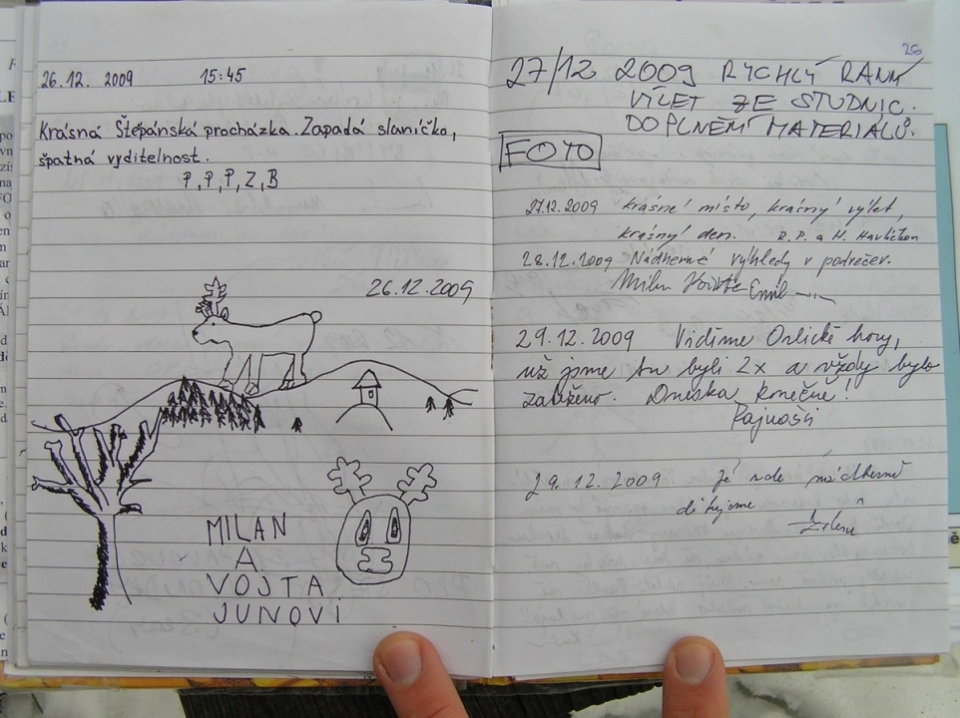 26.12. 2009 15:45
Krásná Štěpánská procházka. Zapadá slaníčko,
špatná vyditelnost.
P, P, P, Z, B
26.12.2009
MILAN
A
VOJTA
JUNOVI
26
27/12 2009 RYCHLÝ RANNÍ
VÝLET ZE STUDNIC.
DOPLNĚNÍ MATERIÁLŮ.
FOTO
27.12.2009 krásné místo, krásný výlet,
krásný den. R.P. a M. Havlíčkovi
28.12.2009 Nádherné výhledy v podvečer.
Milan Emil
29.12.2009 Vidíme Orlické hory,
už jsme tu byli 2x a vždy bylo
zataženo. Dneska konečně!
Pajnošii
29.12.2009 je nádherně
děkujeme